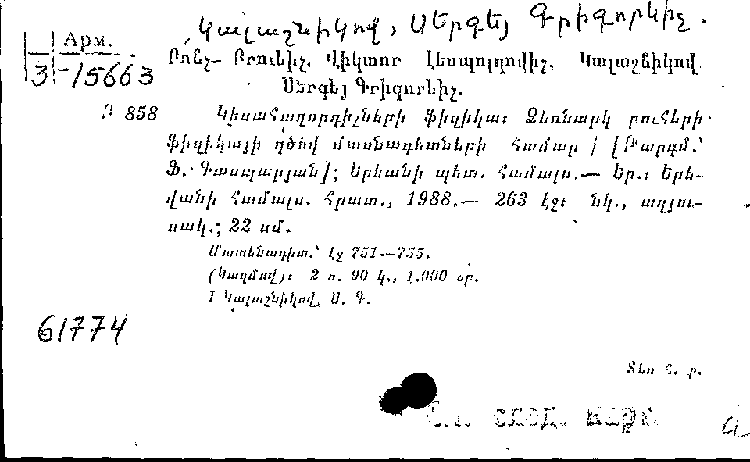 Կալաշնիկով, Սերգեյ Գրիգորևիչ.
Арм.
3-15663
Բոնչ-Բրուևիչ, Վիկտոր Լեոպոլդովիչ, Կալաշնիկով,
Սերգեյ Գրիգորևիչ.
Բ 858
Կիսահաղորդիչների ֆիզիկա: Ձեռնարկ բուհերի
ֆիզիկայի գծով մասնագետների համար / [Թարգմ.՝
Ֆ. Գասպարյան]; Երևանի պետ. համալս.— Եր.: Երև-
վանի համալս. հրատ., 1988.— 263 էջ: նկ., աղյու-
սակ.; 22 սմ.
Մատենագիտ.՝ էջ 751—755.
(Կազմով): 2 ռ. 90 կ., 1.000 օր.
I Կալաշնիկով, Ս. Գ.
61774
Տես հ. ր.